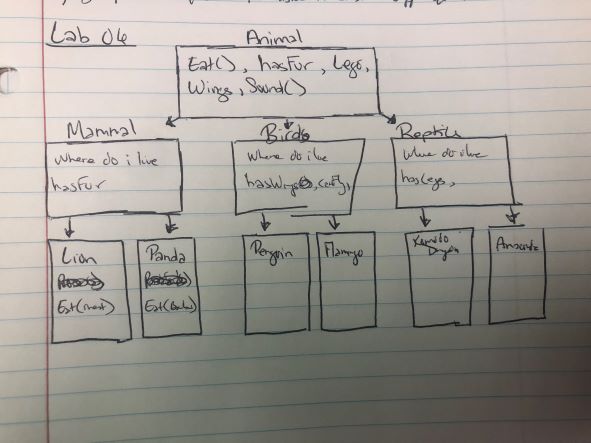 Lab 04
Animal
Eat(), hasFur, Legs,
Wings, Sound()
Mammal
Where do i live
hasFur
Birds
Where do i live
hasWings
Reptile
Where do i live
hasLegs,
Lion
Eat(meat)
Panda
Penguin
Flamingo
Komodo
Dragon
Anaconda